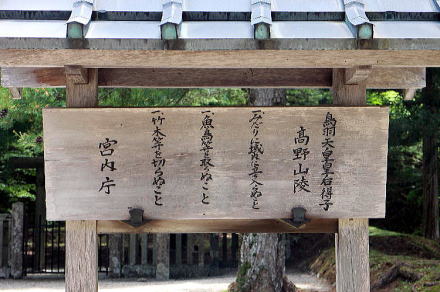 鳥羽天皇皇后得子
高野山陵
一、みだりに域内に立入らぬこと
一、魚鳥等を取らぬこと
一、竹木等を切らぬこと
宮内庁